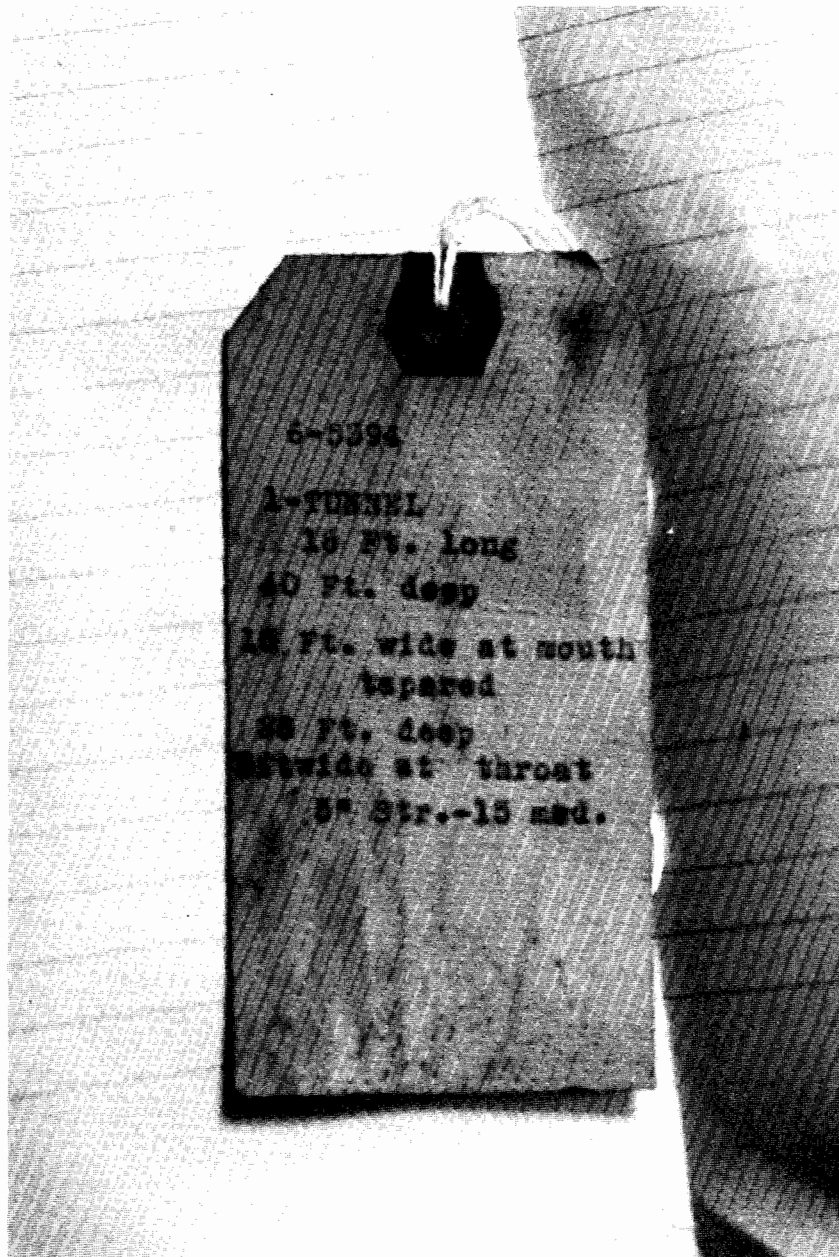 6-5394
1-TUNNEL
16 Ft. long
40 Ft. deep
Ft. wide at mouth
tapered
Ft. deep
wide at throat
5" Str.-15 med.